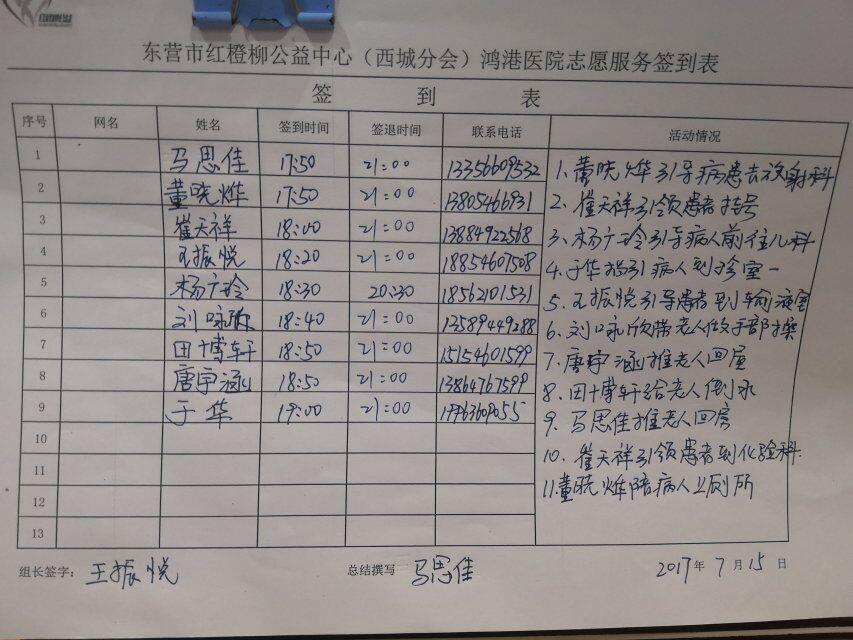 东营市红橙柳公益中心（西城分会）鸿港医院志愿服务签到表
签 到 表
序号 网名 姓名 签到时间 签退时间 联系电话 活动情况
1 马思佳 17:50 21:00 13356609532
2 董晓烨 17:50 21:00 13805466931
3 崔天祥 18:00 21:00 13884922568
4 王振悦 18:20 21:00 18854607508
5 杨广玲 18:30 20:30 18562101531
6 刘咏欣 18:40 21:00 13589449288
7 田博轩 18:50 21:00 15154601599
8 唐宇涵 18:50 21:00 13864767599
9 于华 19:00 21:00
10
11
12
13
1、董晓烨引导病患去放射科
2、崔天祥引领患者挂号
3、杨广玲引导病人前往儿科
4、于华指引病人到诊室一
5、王振悦引导患者到输液室
6、刘咏欣带老人做
7、唐宇涵推老人回屋
8、田博轩给老人倒水
9、马思佳推老人回房
10、崔天祥引领患者到化验科.
11.董晓烨陪病人上厕所
组长签字： 王振悦 总结撰写 马思佳 2017年 7 月 15 日